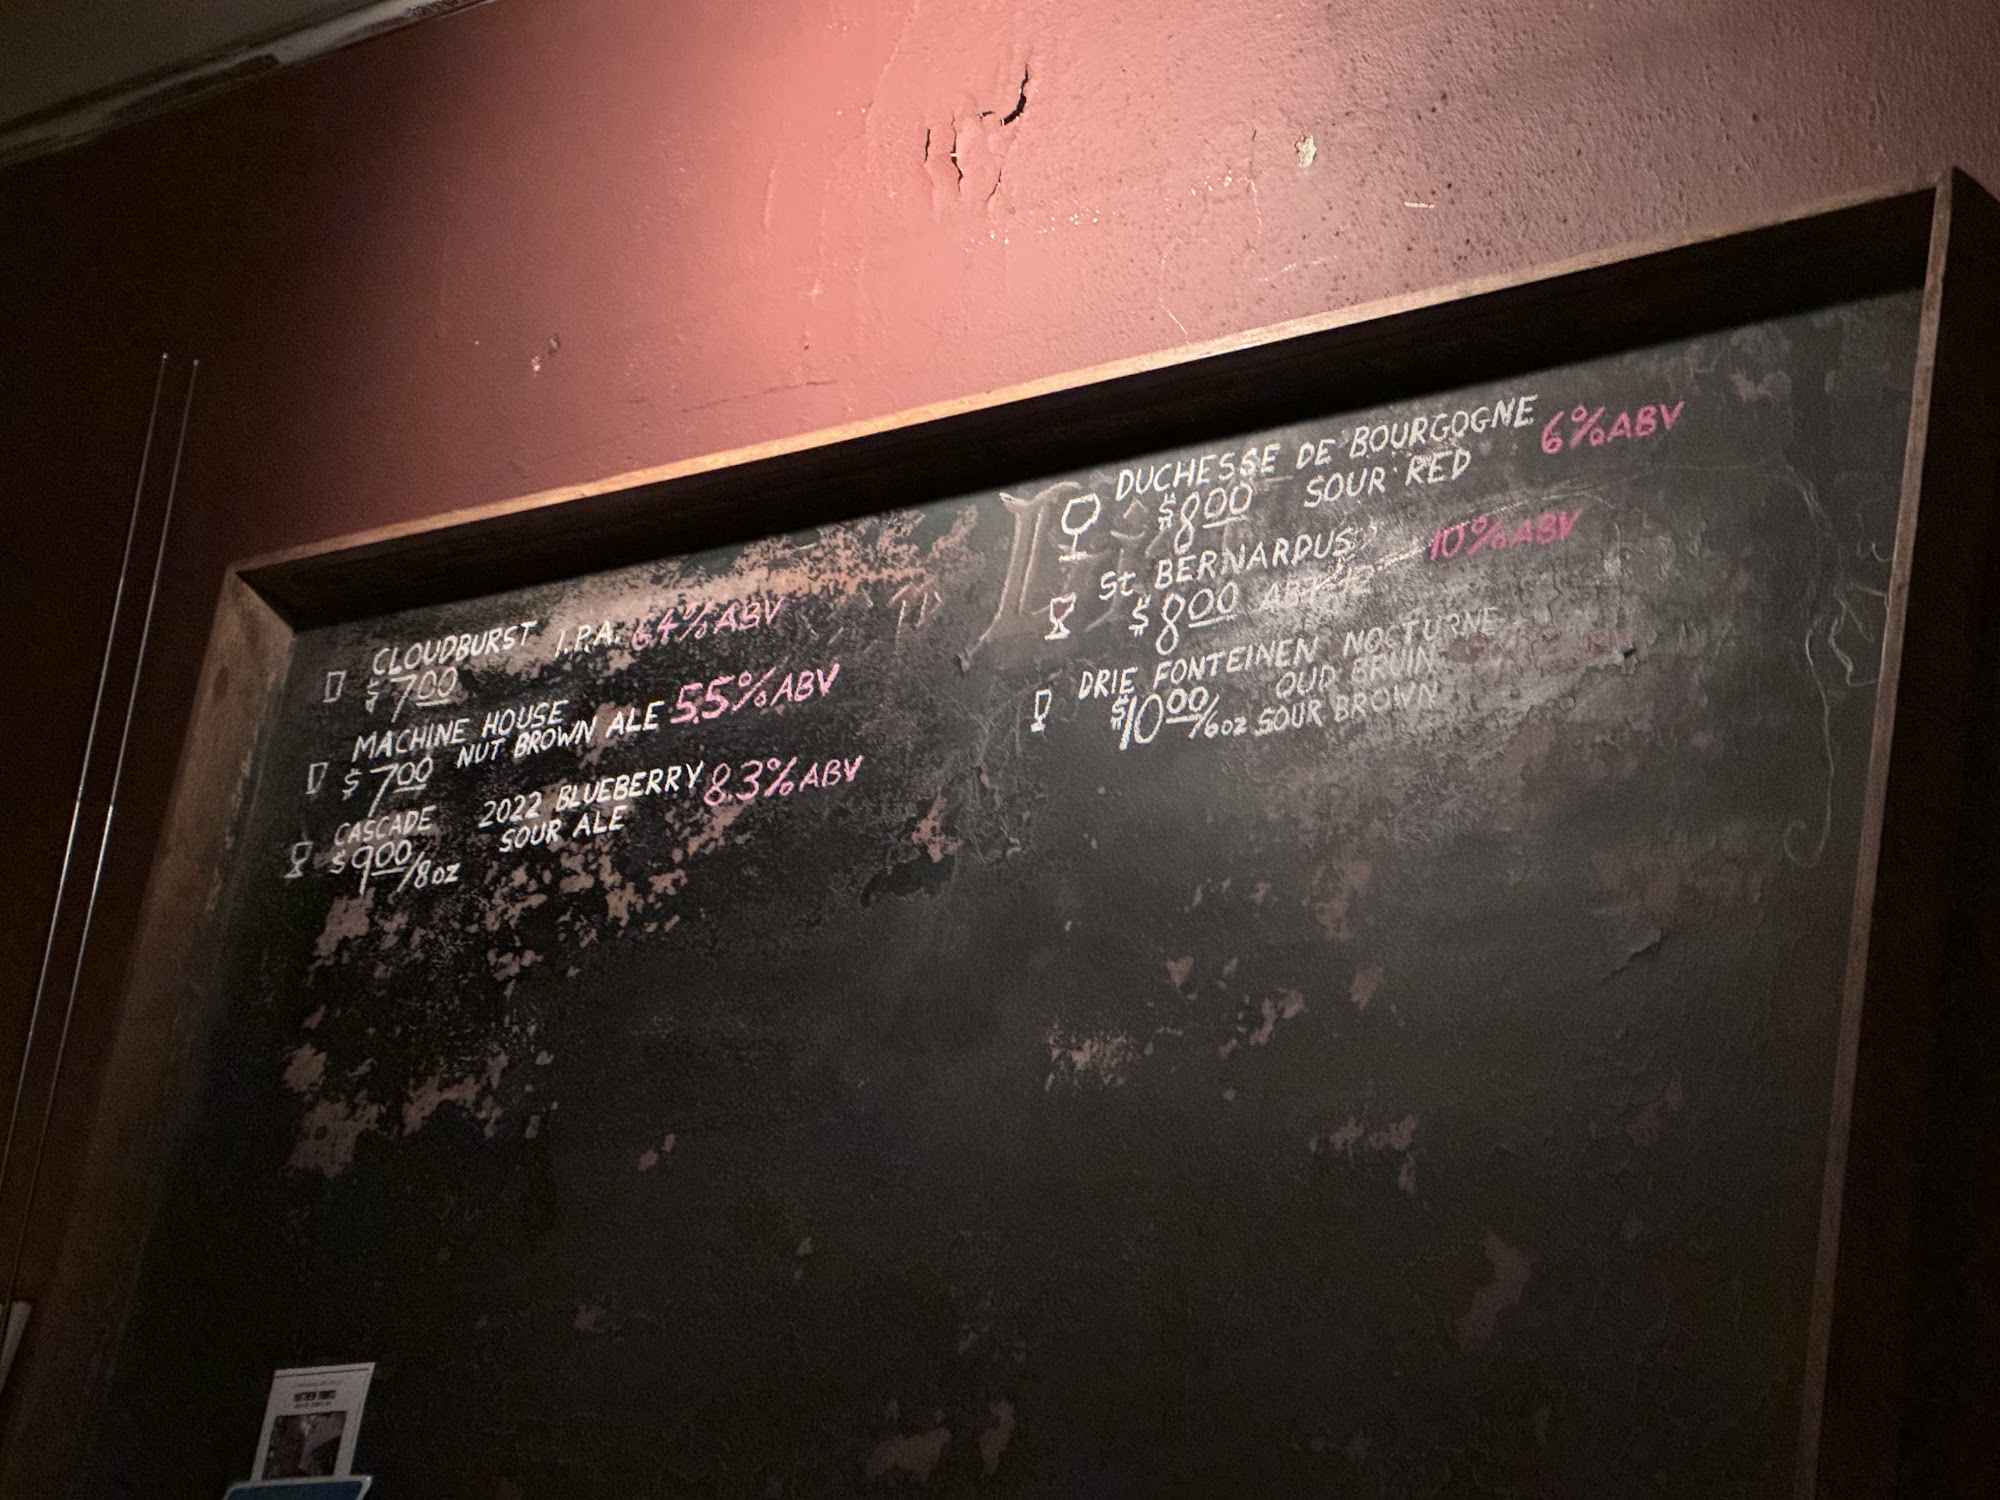 CLOUDBURST I.P.A. 6.4% ABV
$7.00
MACHINE HOUSE
NUT BROWN ALE 5.5% ABV
$7.00
CASCADE 2022 BLUEBERRY 8.3% ABV
$9.00/8oz SOUR ALE
DUCHESSE DE BOURGOGNE 6% ABV
$8.00 SOUR RED
St. BERNARDUS 10% ABV
$8.00
DRIE FONTEINEN NOCTURNE
OUD BRUIN
$10.00/6oz SOUR BROWN